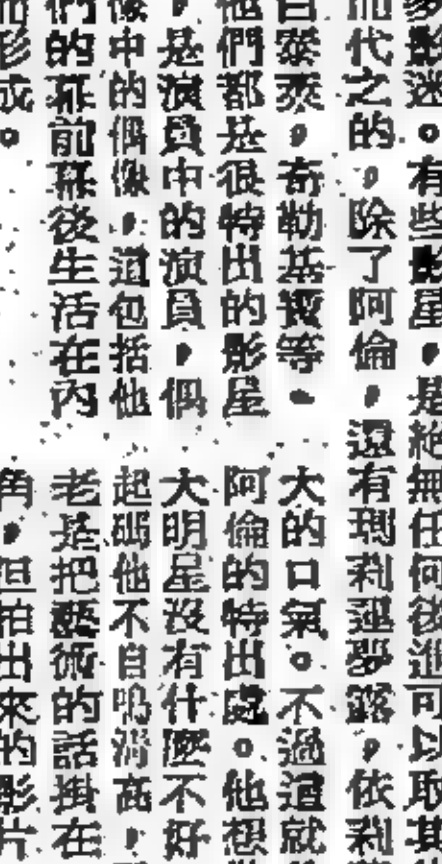 多影迷。有些影星，是絕無任何後進可以取其
而代之的，除了阿倫，還有瑪莉蓮夢露，依莉
白泰萊，奇勒基寶等
他們都是很特出的影星
，是演員中的演員，偶
像中的偶像，這包括他
們的幕前幕後生活在內
而形成。
大的口氣。不過這就
阿倫的特出處。他想
大明星沒有什麼不好
起碼他不自鳴清高，
老是把藝術的話掛在
角，但拍出來的影片